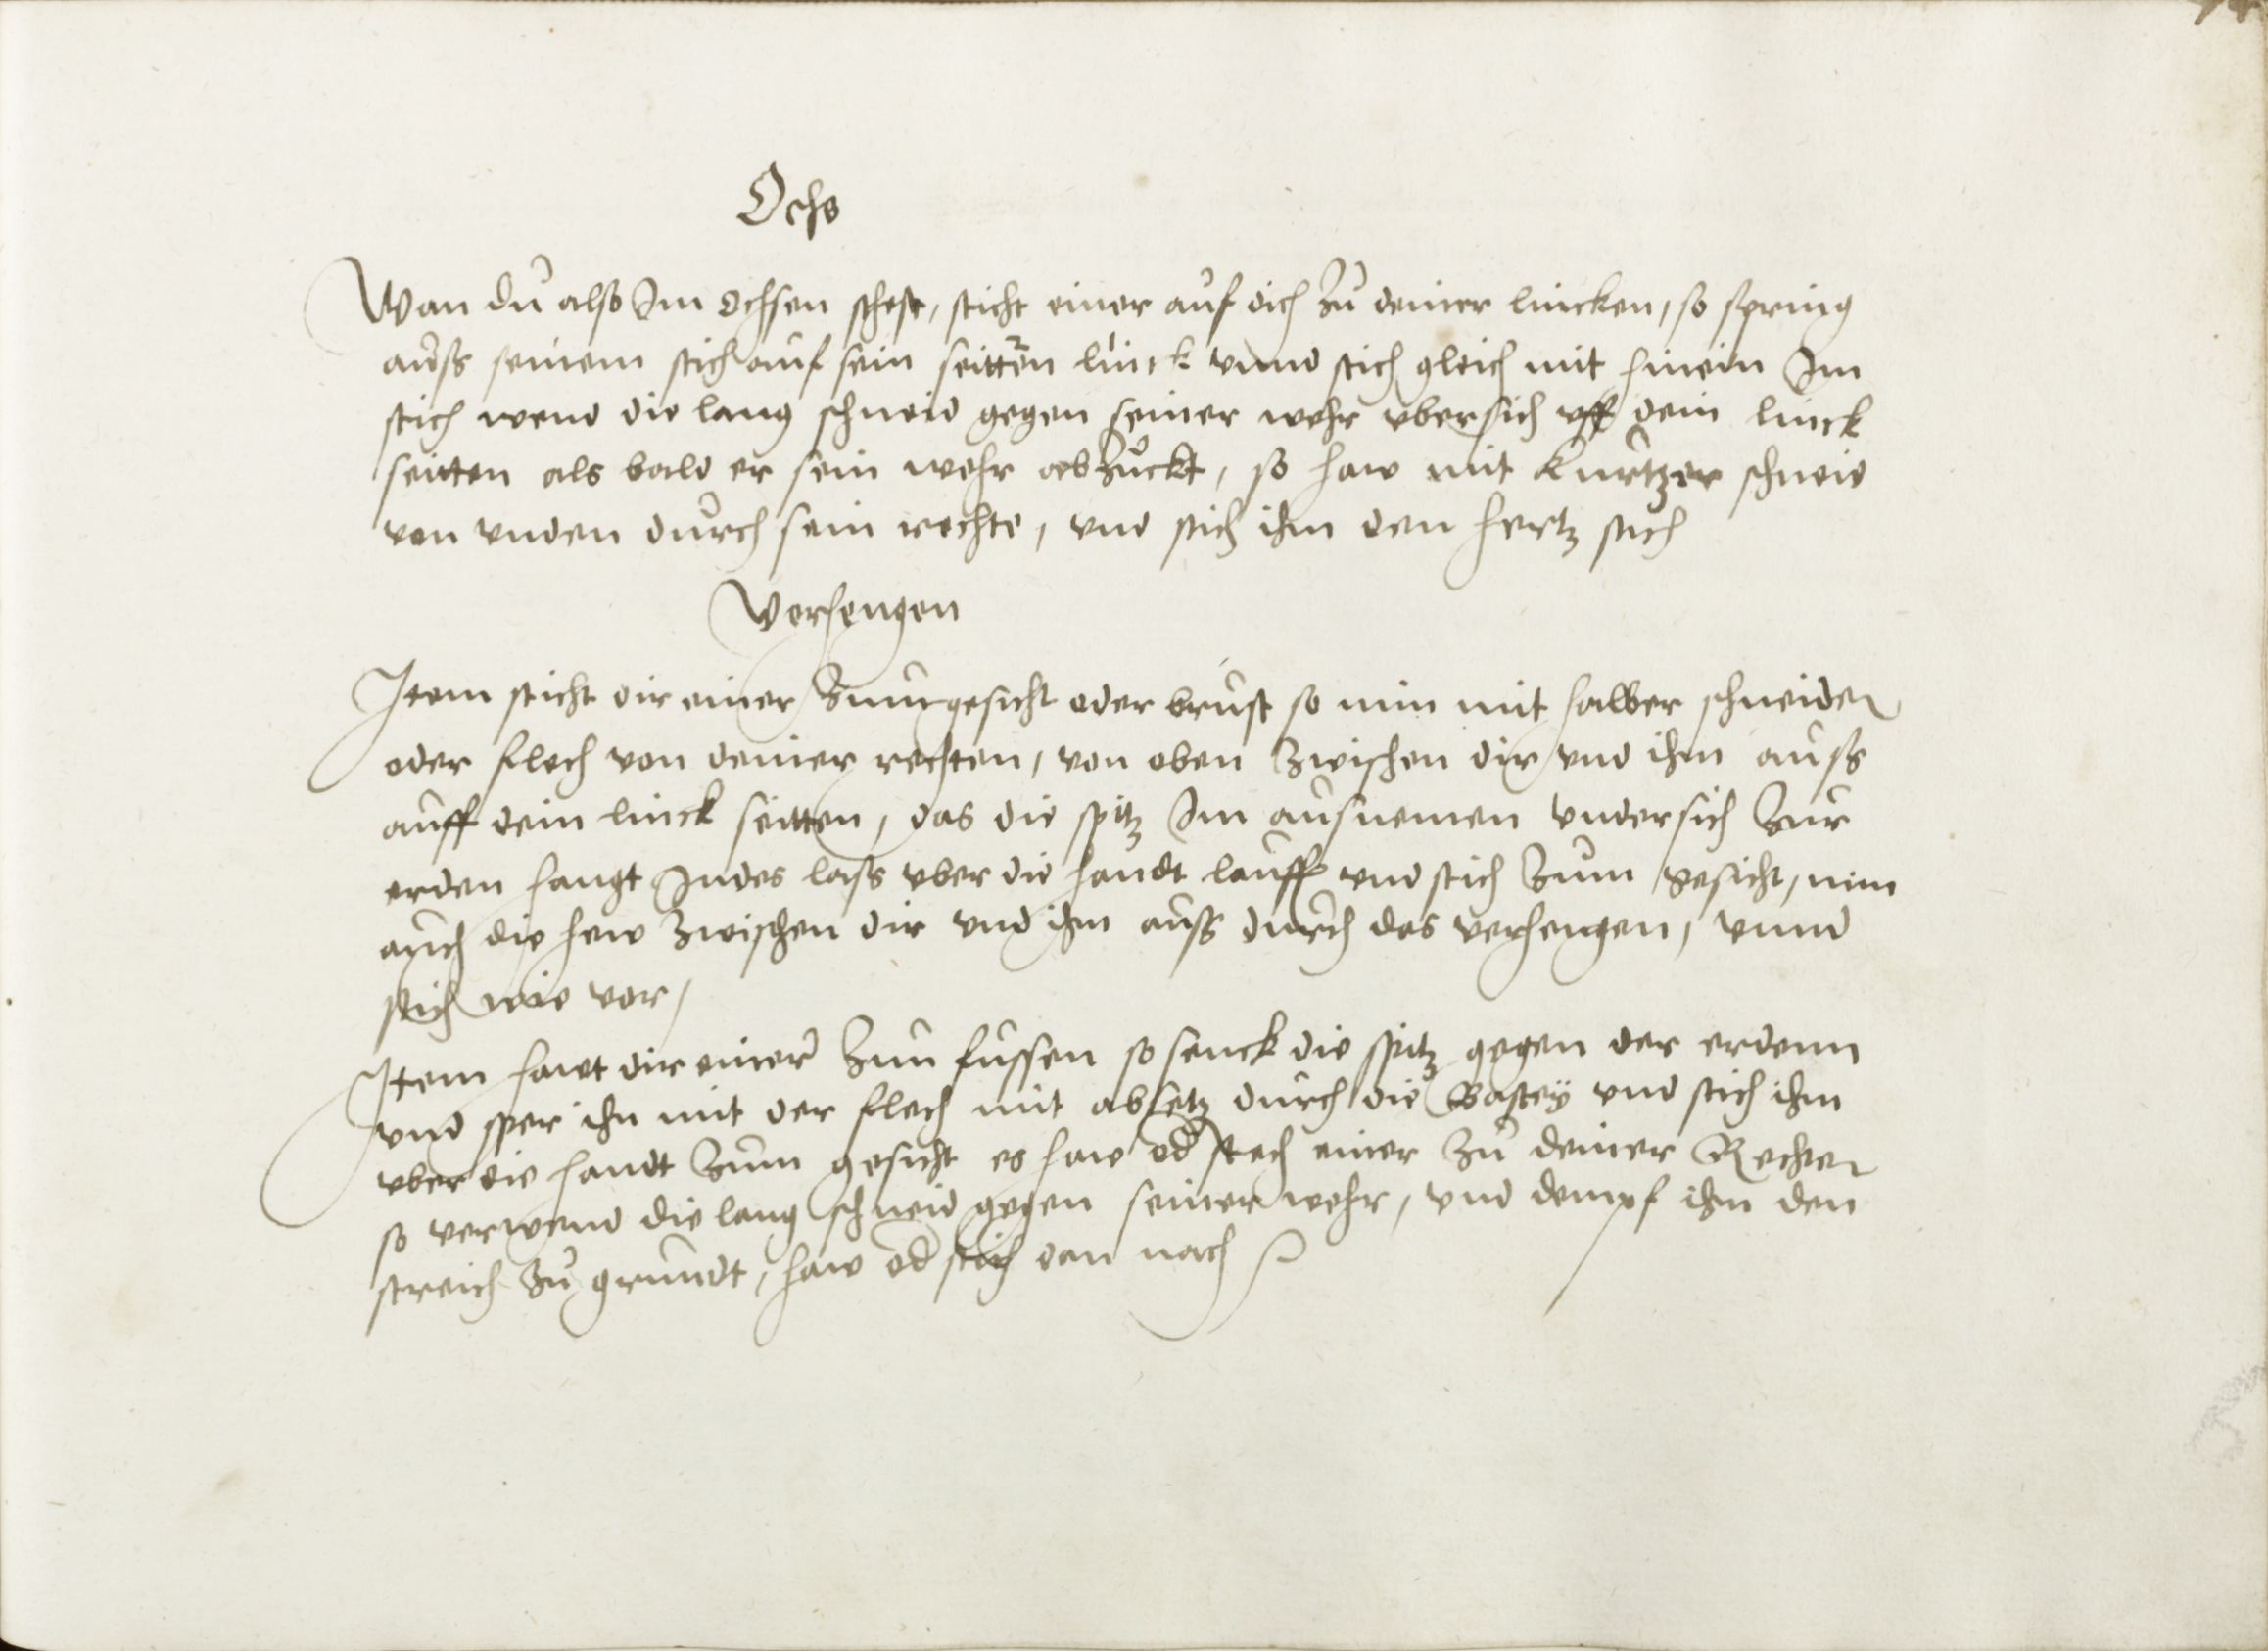 Ochs
Wan du also Im Ochsen schest, sticht einer auf dich zu deiner lincken, so spring
auss seinem stich auf sein seitten linck vnnd stich gleich mit hinein Im
stich wend die lang schneid gegen seiner wehr vbersich vff dein linck
seitten als bald er sein wehr abzuckt, so haw mit kurtzer schneid
von vnden durch sein rechte, vnd stich ihm den hertz stich
Verhengen
Item sticht dir einer zum gesicht oder brust so nim mit halber schneiden
oder flech von deiner rechten, von oben zwischen dir vnd ihm auss
auff dein linck seitten, das die spitz Im ausnemen vndersich zur
erden hangt Indes lass vber die handt lauff vnd stich zum gesicht, nim
auch die hew zwischen dir vnd ihm auss durch das verhengen, vnnd
stich wie vor,
Item hawt dir einer zun fussen so senck die spitz gegen der erdenn
vnd sper ihn mit der flech mit absetz durch die Bastey vnd stich ihm
vber die handt zum gesicht es haw od stech einer zu deiner Rechten
so verwend die lang schneid gegen seiner wehr, vnd dempf ihm den
streich zu grundt, haw od stich dan nach